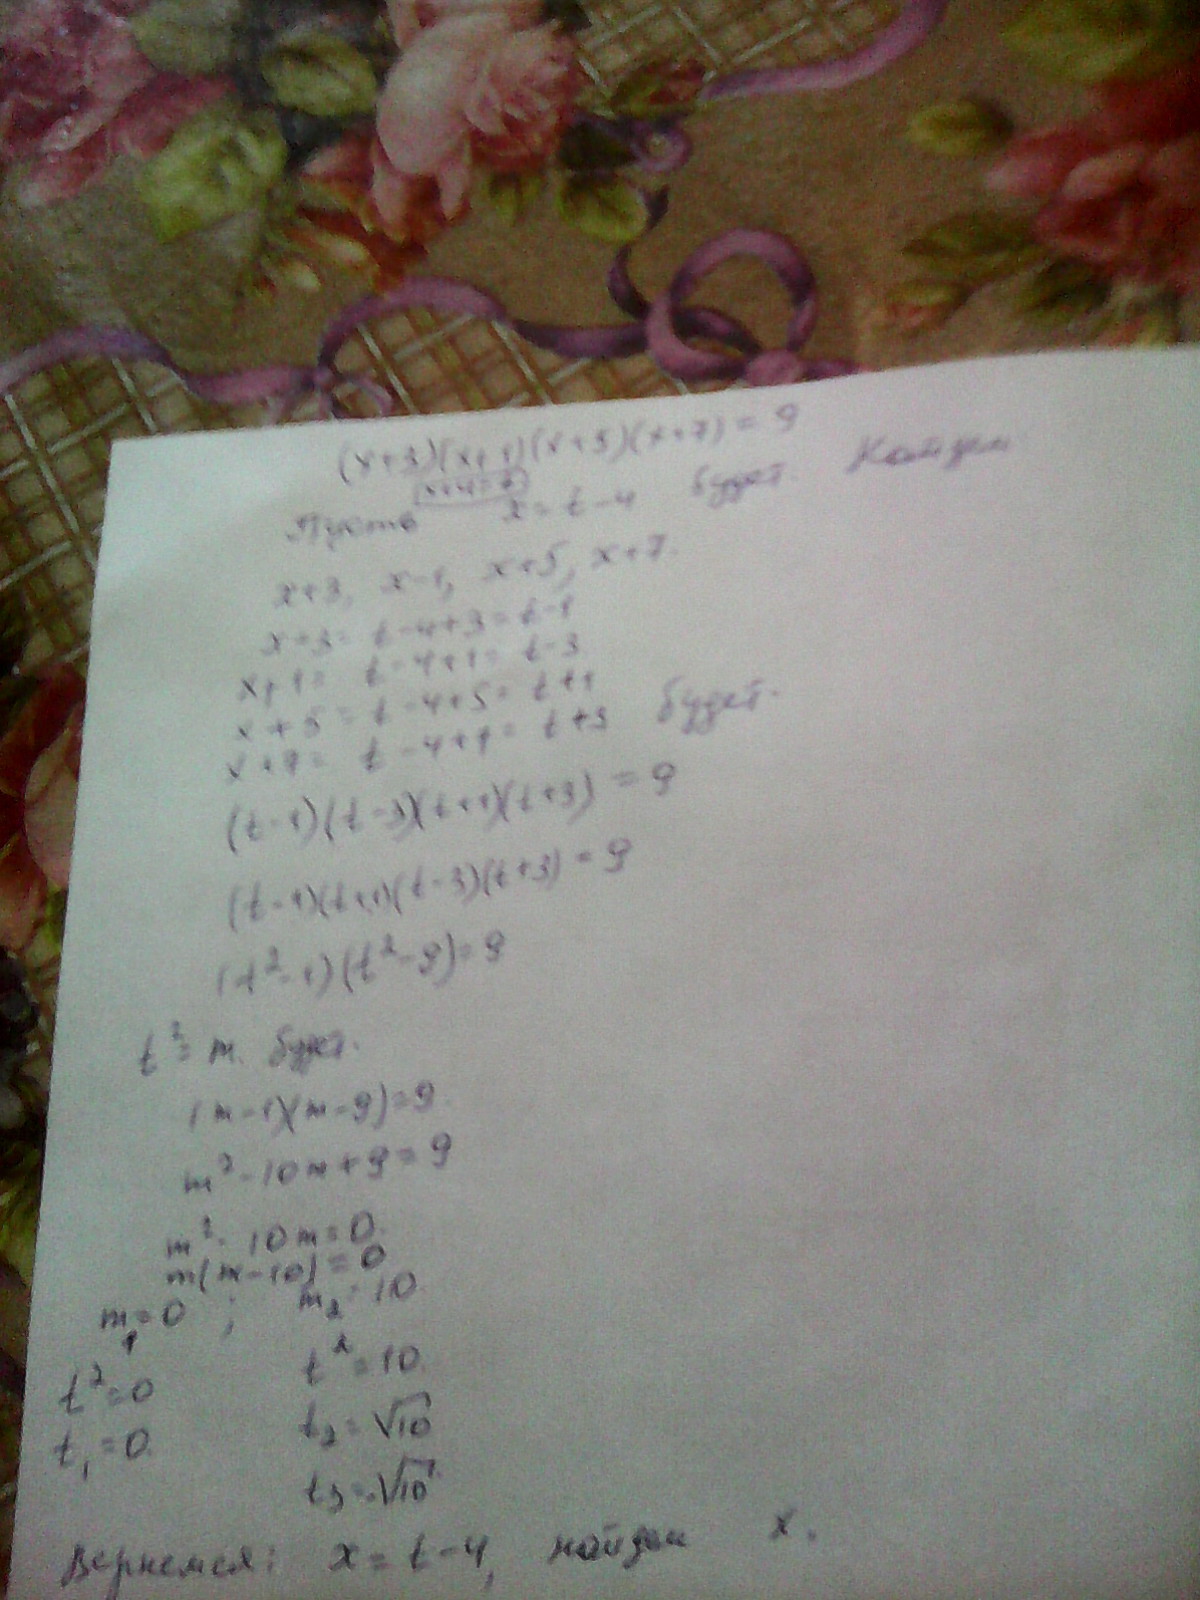 (x+3)(x+1)(x+5)(x+7)=9
x+4=t
Пусть x=t-4 будет. Найдем
x+3, x-1, x+5, x+7.
x+3= t-4+3= t-1
x+1= t-4+1= t-3
x+5= t-4+5= t+1
x+7= t-4+7= t+3 будет.
(t-1)(t-3)(t+1)(t+3)=9
(t-1)(t+1)(t-3)(t+3)=9
(t²-1)(t²-9)=9
t²=m. будет.
(m-1)(m-9)=9.
m²-10m+9=9
m²-10m=0.
m(m-10)=0
m₁=0 ; m₂=10
t²=0 t²=10.
t₁=0. t₂=√10
t₃=-√10.
Вернемся: x=t-4, найдем x.